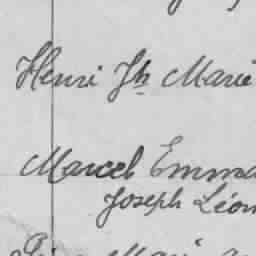 Henri Jh Marie
Marcel Emma
Joseph Léon